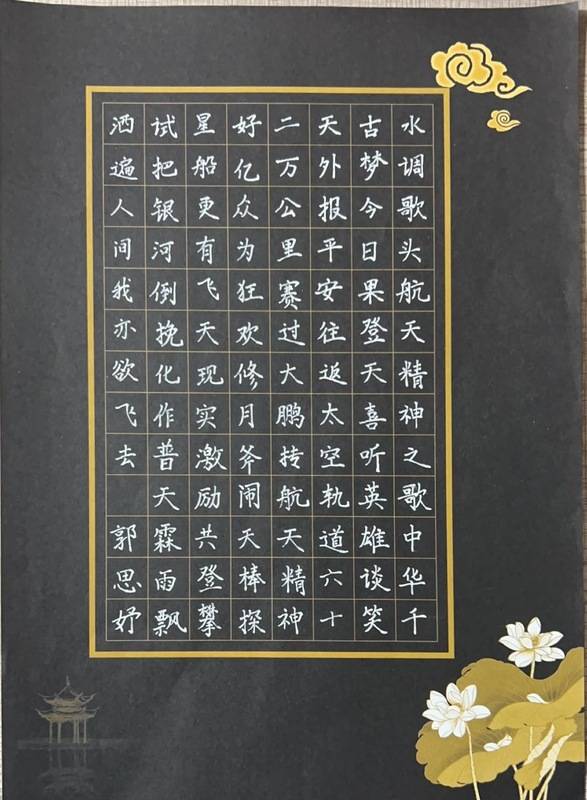 水调歌头航天精神之歌中华千
古梦今日果登天喜听英雄谈笑
天外报平安往返太空轨道六十
二万公里赛过大鹏抟航天精神
好亿众为狂欢修月斧闹天棒探
星船更有飞天现实激励共登攀
试把银河倒挽化作普天霖雨飘
洒遍人间我亦欲飞去 郭思妤